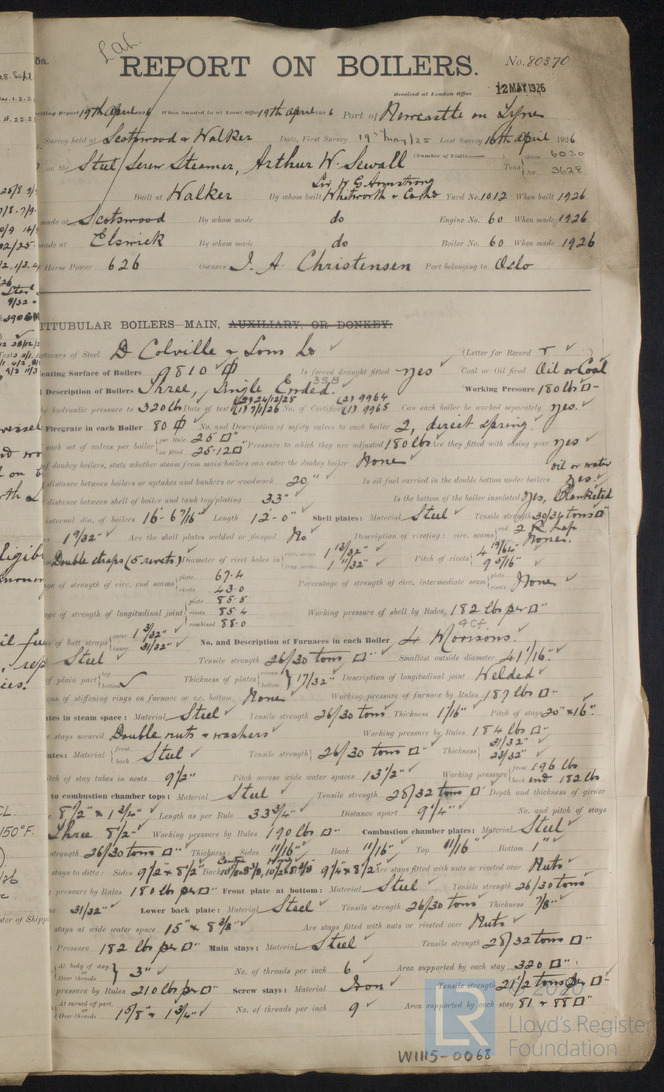 Lat.
REPORT ON BOILERS.
No. 80370
Received at London Office 12 MAY 1926
Report 19th April 1926 When handed in at Local Office 19th April 1926 Port of Newcastle on Tyne
Survey held at Scotswood & Walker Date, First Survey 19th May/25 Last Survey 16th April 1926
(Number of Visits
on the Steel Screw Steamer, Arthur W. Sewall Tons Gross 6030 Net 3628
Built at Walker By whom built Sir W G Armstrong Whitworth & Co Ltd Yard No. 1012 When built 1926
made at Scotswood By whom made do Engine No. 60 When made 1926
made at Elswick By whom made do Boiler No. 60 When made 1926
Horse Power 626 Owners J. A Christensen Port belonging to Oslo
MULTITUBULAR BOILERS MAIN, AUXILIARY, OR DONKEY.
Manufacturers of Steel D Colville & Sons Ld (Letter for Record
Heating Surface of Boilers 9810 Is forced draught fitted yes Coal or Oil fired Oil or Coal
Description of Boilers Three, Single Ended. 3SB Working Pressure 180 lb
by hydraulic pressure to 320 lb Date of test (2) 24/12/25 (1) 7/1/26 No. of Certificate (2) 9964 (1) 9965 Can each boiler be worked separately yes.
Firegrate in each Boiler 80 No. and Description of safety valves to each boiler 2, direct spring.
each set of valves per boiler per Rule 25 as fitted 25.12 Pressure to which they are adjusted 180 lb Are they fitted with easing gear yes
of donkey boilers, state whether steam from main boilers can enter the donkey boiler None
distance between boilers or uptakes and bunkers or woodwork 20" Is oil fuel carried in the double bottom under boilers oil or water yes.
distance between shell of boiler and tank top plating 33" Is the bottom of the boiler insulated yes, Blanketed
internal dia. of boilers 16'-6 7/16" Length 12'-0" Shell plates: Material Steel Tensile strength 30/34 tons
1 9/32" Are the shell plates welded or flanged No Description of riveting: circ. seams end 2 R Lap None.
Double straps (5 rivets) Diameter of rivet holes in circ. seams 1 13/32" long. seams 1 11/32" Pitch of rivets 4 19/64" 9 5/16"
of strength of circ. end seams plate 67.4 rivets 43.0 Percentage of strength of circ. intermediate seam plate rivets None
of strength of longitudinal joint plate 85.5 rivets 85.4 combined 88.0 Working pressure of shell by Rules 182 lb per "
of butt straps outer 1 3/32" inner 31/32" No. and Description of Furnaces in each Boiler 4 Morisons.
Steel Tensile strength 26/30 tons Smallest outside diameter 41 1/16"
of plain part top bottom Thickness of plates crown bottom 17/32" Description of longitudinal joint Welded
of stiffening rings on furnace or c.c. bottom None Working pressure of furnace by Rules 187 lb
plates in steam space: Material Steel Tensile strength 26/30 tons Thickness 1 1/16" Pitch of stays 20" x 16".
stays secured Double nuts & washers Working pressure by Rules 184 lb
plates: Material front back Steel Tensile strength 26/30 tons Thickness 31/32" 23/32"
Pitch of stay tubes in nests 9 1/2" Pitch across wide water spaces 13 1/2" Working pressure front 196 lb back 182 lb
to combustion chamber tops: Material Steel Tensile strength 28/32 tons Depth and thickness of girder
8 1/2" x 1 3/4" Length as per Rule 33 3/4" Distance apart 9 1/4" No. and pitch of stays
Three 8 1/2" Working pressure by Rules 190 lb Combustion chamber plates: Material Steel
strength 26/30 tons Thickness: Sides 11/16" Back 11/16" Top 11/16" Bottom 1"
stays to ditto: Sides 9 1/2" x 8 1/2" Back Centre Wing Top 9 1/4" x 8 1/2" Are stays fitted with nuts or riveted over Nuts
pressure by Rules 180 lb per Front plate at bottom: Material Steel Tensile strength 26/30 tons
31/32" Lower back plate: Material Steel Tensile strength 26/30 tons Thickness 7/8"
stays at wide water space 15" x 8 3/8" Are stays fitted with nuts or riveted over Nuts
Pressure 182 lb per Main stays: Material Steel Tensile strength 28/32 tons
At body of stay, Over threads 3" No. of threads per inch 6 Area supported by each stay 320 "
pressure by Rules 210 lb per Screw stays: Material Iron Tensile strength 21 1/2 tons
At turned off part, or Over threads 1 5/8" & 1 3/4" No. of threads per inch 9 Area supported by each stay 81 & 88 "
© 2020
LR Lloyd's Register Foundation
W1115-0068